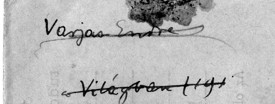 Vasjas Endre
"Világban (19)